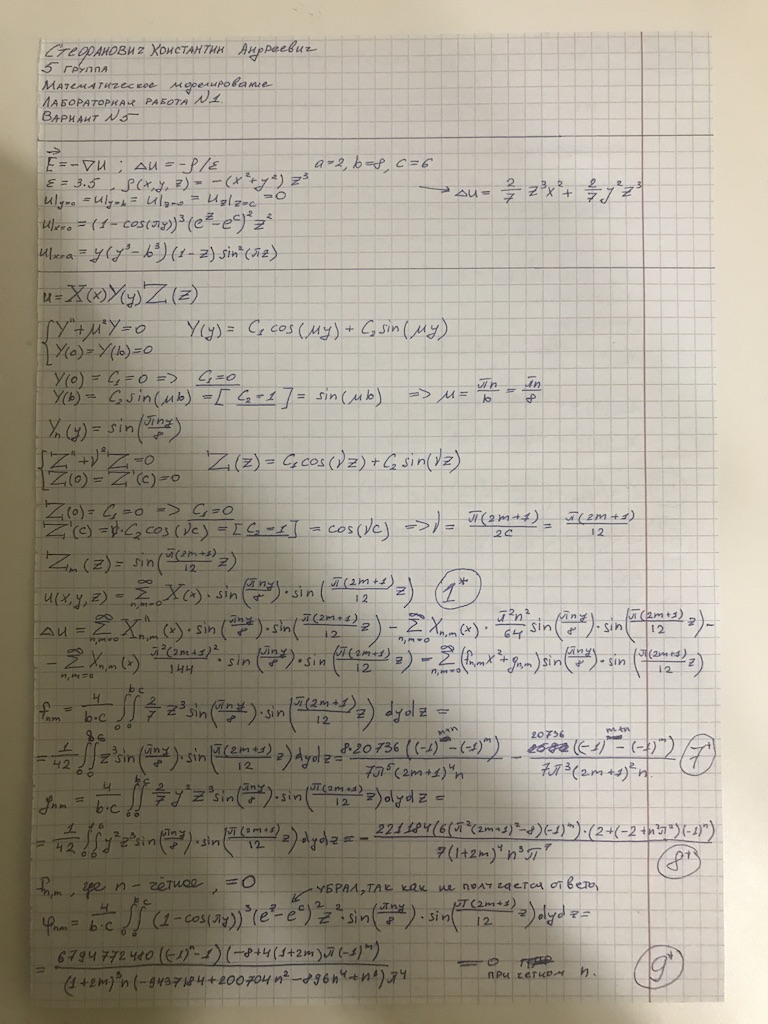 Стефанович Константин Андреевич
5 группа
Математическое моделирование
Лабораторная работа N1
Вариант N5
E⃗ = -∇u ; Δu = -ρ/ε a=2, b=8, c=6
ε = 3.5 , ρ(x,y,z) = -(x²+y²) z³ → Δu = 2/7 z³x² + 2/7 y²z³
u|y=0 = u|y=b = u|z=0 = u_z|z=c = 0
u|x=0 = (1 - cos(πy))³ (e^z - e^c)² z²
u|x=a = y(y³ - b³)(1 - z) sin²(πz)
u = X(x)Y(y)Z(z)
{ Y'' + μ²Y = 0 Y(y) = C₁ cos(μy) + C₂ sin(μy)
{ Y(0) = Y(b) = 0
Y(0) = C₁ = 0 => C₁ = 0
Y(b) = C₂ sin(μb) = [C₂ = 1] = sin(μb) => μ = πn/b = πn/8
Yₙ(y) = sin(πny/8)
{ Z'' + √²Z = 0 Z(z) = C₁ cos(√z) + C₂ sin(√z)
{ Z(0) = Z'(c) = 0
Z(0) = C₁ = 0 => C₁ = 0
Z'(c) = √·C₂ cos(√c) = [C₂ = 1] = cos(√c) => √ = π(2m+1)/2c = π(2m+1)/12
Zₘ(z) = sin(π(2m+1)/12 z)
u(x,y,z) = Σ^∞_{n,m=0} X(x)·sin(πny/8)·sin(π(2m+1)/12 z) 1*
Δu = Σ^∞_{n,m=0} X''_{n,m}(x)·sin(πny/8)·sin(π(2m+1)/12 z) - Σ^∞_{n,m=0} X_{n,m}(x)·π²n²/64 sin(πny/8)·sin(π(2m+1)/12 z) -
- Σ^∞_{n,m=0} X_{n,m}(x) π²(2m+1)²/144 · sin(πny/8)·sin(π(2m+1)/12 z) = Σ^∞_{n,m=0} (f_{n,m}x² + g_{n,m}) sin(πny/8)·sin(π(2m+1)/12 z)
f_{nm} = 4/(b·c) ∫₀^b∫₀^c 2/7 z³ sin(πny/8)·sin(π(2m+1)/12 z) dydz =
= 1/42 ∫₀^8∫₀^6 z³ sin(πny/8)·sin(π(2m+1)/12 z) dydz = 8·20736((-1)^{m+n} - (-1)^m)/(7π⁵(2m+1)⁴n) - 20736((-1)^{m+n} - (-1)^m)/(7π³(2m+1)²n) 7*
g_{nm} = 4/(b·c) ∫₀^b∫₀^c 2/7 y²z³ sin(πny/8)·sin(π(2m+1)/12 z) dydz =
= 1/42 ∫₀^8∫₀^6 y²z³ sin(πny/8)·sin(π(2m+1)/12 z) dydz = - 221184(6(π²(2m+1)²-8)(-1)^m)·(2+(-2+n²π²)(-1)ⁿ)/(7(1+2m)⁴ n³π⁷) 8*
f_{n,m}, где n - чётное, = 0
убрал, так как не получается ответа
φ_{nm} = 4/(b·c) ∫₀^b∫₀^c (1 - cos(πy))³ (e^z - e^c)² z² · sin(πny/8)·sin(π(2m+1)/12 z) dydz =
= 6794772480((-1)ⁿ-1)(-8+4(1+2m)π(-1)^m)/((1+2m)³n(-9437184+200704n²-896n⁴+n⁶)π⁴) = 0 при четном n. 9*